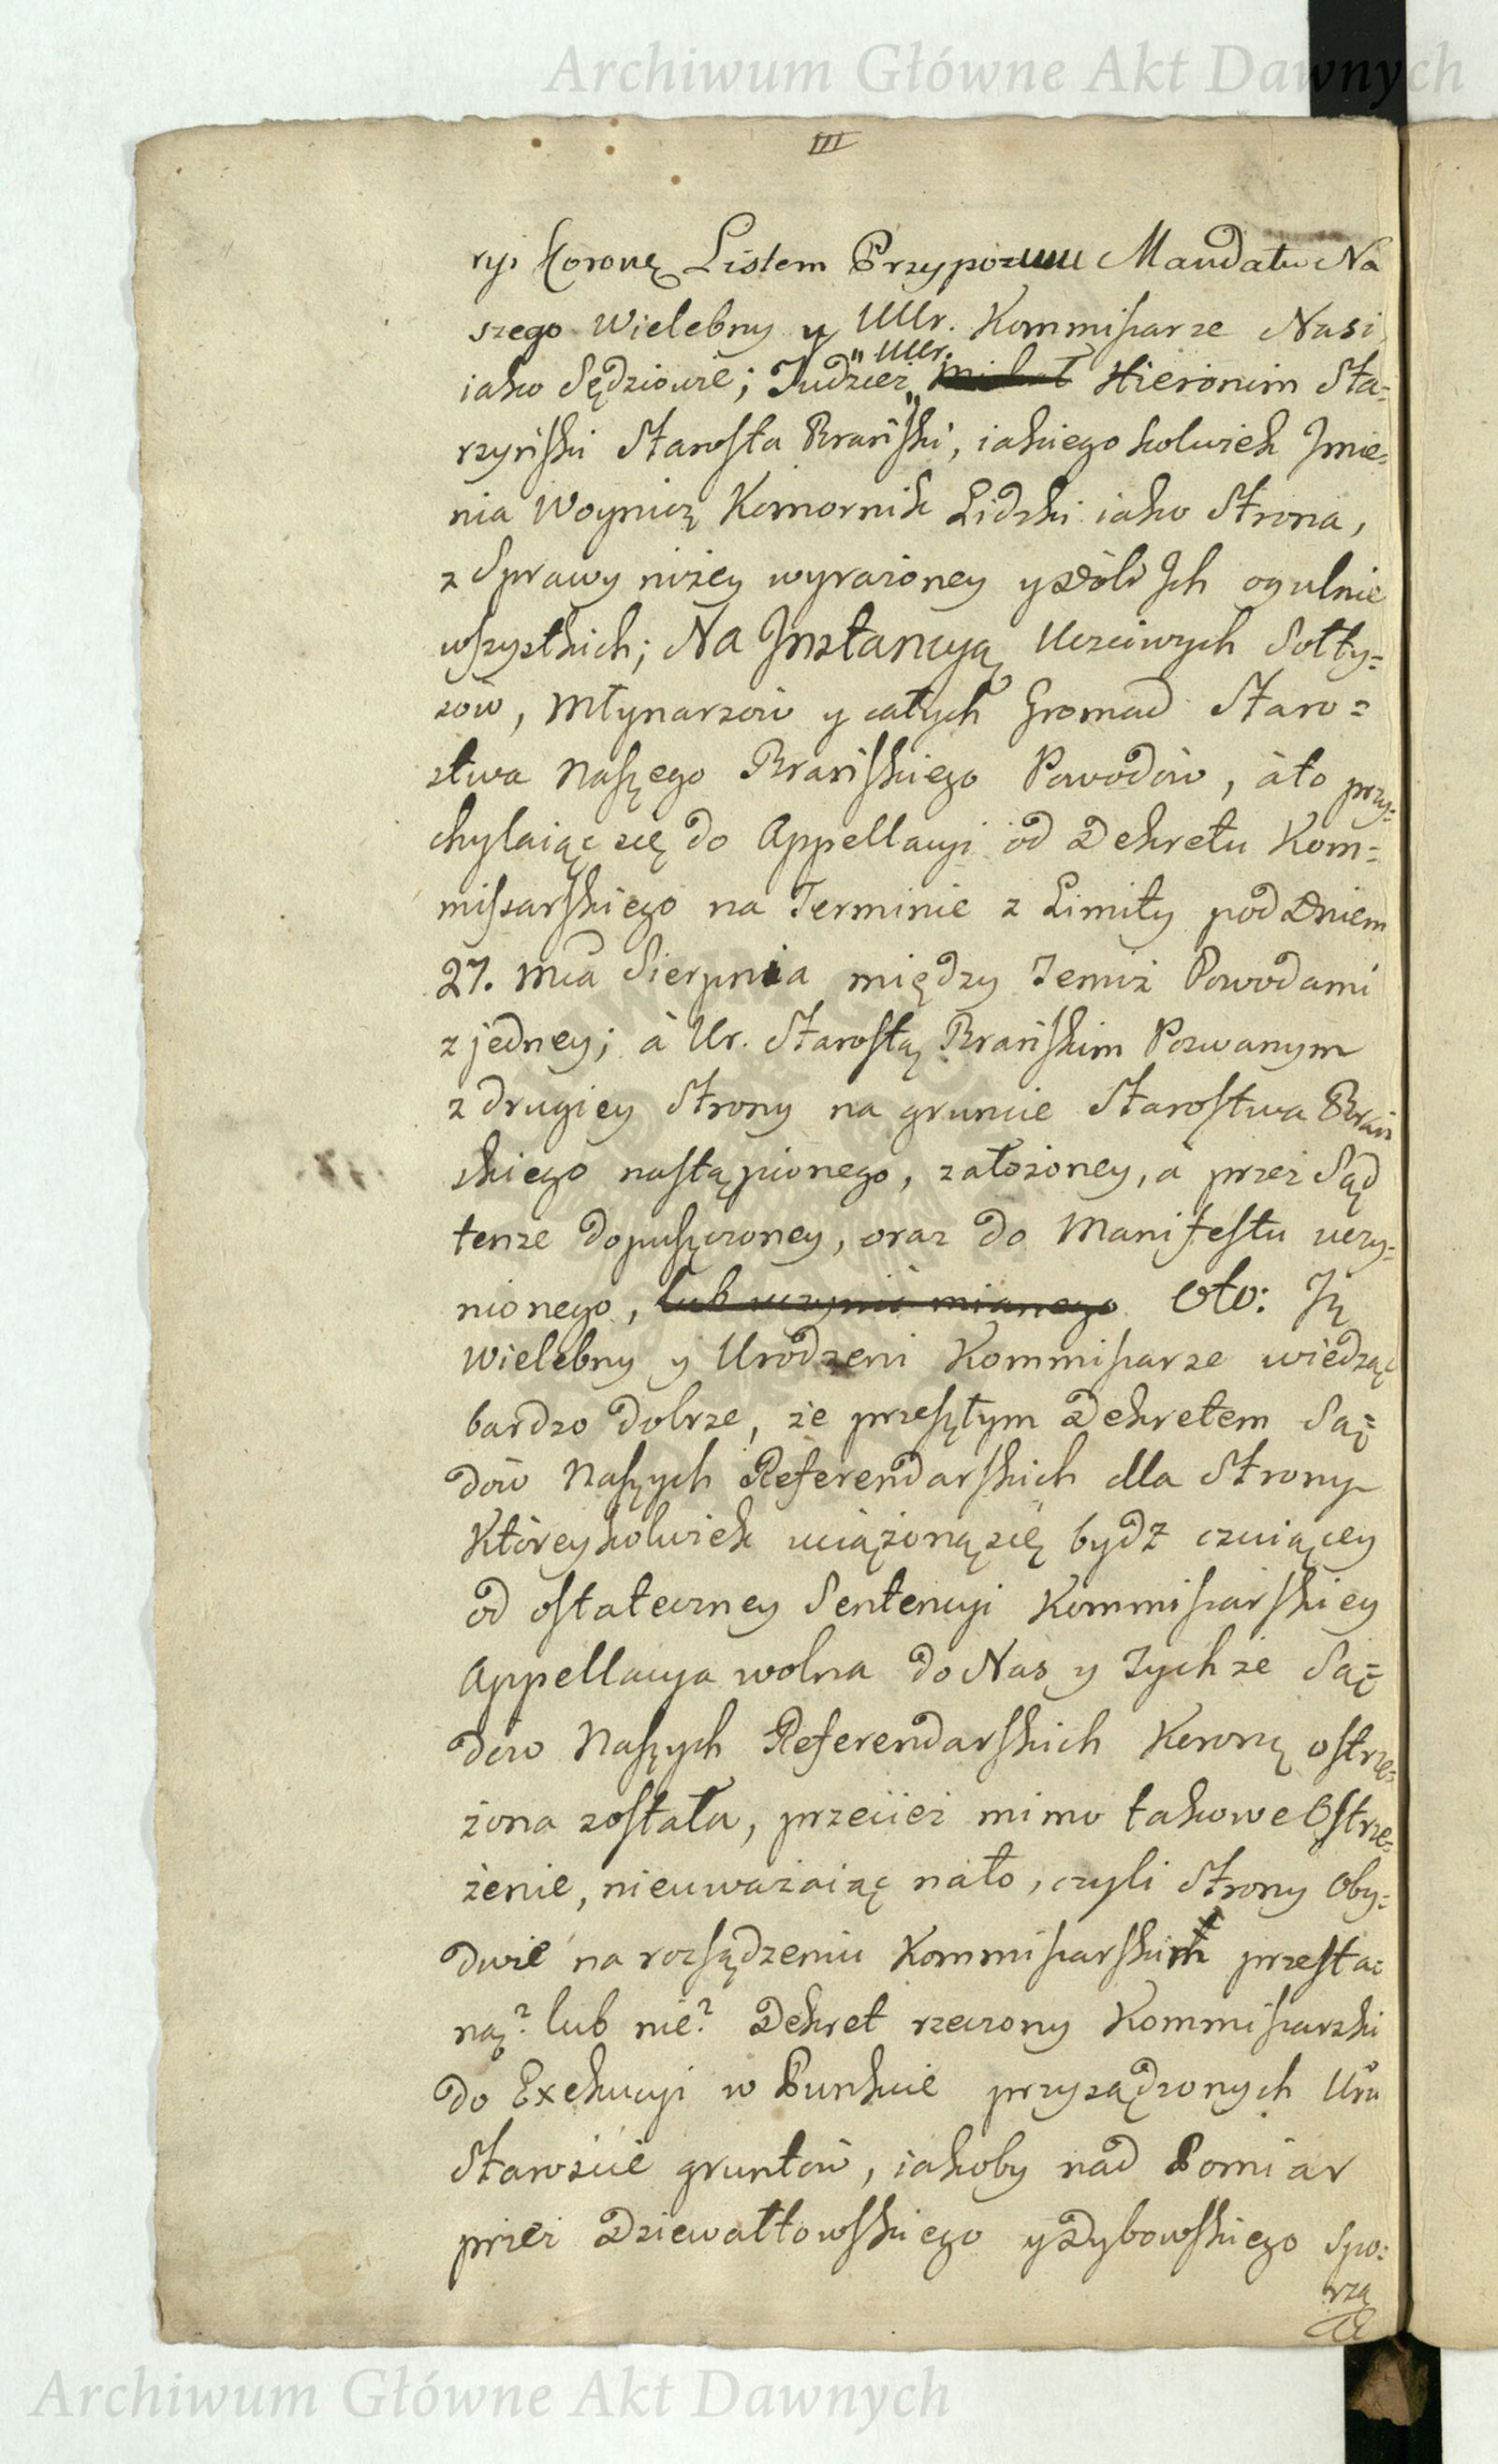 Archiwum Główne Akt Dawnych
III
ryi Koronę Listem Przypozwu Mandatu Na
szego Wielebny y UUr. Kommissarze Nasi,
iako Sędziowie; Tudzież „Uur." Michał Hieronim Sta=
rzyński Starosta Brański, iakiegokolwiek Jmie=
nia Woynicz Komornik Lidzki iako Strona,
z Sprawy niżey wyrażoney y Dóbr Jch ogulnie
wszystkich; Na Jnstancyą Uczciwych Sołty=
sów, Młynarzów y całych Gromad Staro=
stwa Naszego Brańskiego Powodów, áto przy=
chylaiąc się do Appellacyi od Dekretu Kom=
missarskiego na Terminie z Limity pod Dniem
27. Mca Sierpnia między Temiż Powodami
z jedney; á Ur. Starostą Brańskim Pozwanym
z drugiey Strony na gruncie Starostwa Brań
skiego nastąpionego, założoney, á przez Sąd
tenże dopuszczoney, oraz do Manifestu uczy=
nionego, lub uczynić mianego Oto: Jż
Wielebny y Urodzeni Kommissarze wiedząc
bardzo dobrze, że przeszłym Dekretem Są=
dów Naszych Referendarskich dla Strony
Któreykolwiek uciążoną się bydź czuiącey
od ostateczney Sentencyi Kommissarskiey
Appellacya wolna do Nas y Tychże Są=
dów Naszych Referendarskich Koronę ostrze=
żona została, przecież mimo takowe Ostrze=
żenie, nieuważaiąc nato, czyli Strony Oby=
dwie na rozsądzeniu Kommissarskim przesta
ną? lub nie? Dekret rzeczony Kommissarski
do Exekucyi w Punkcie przysądzonych Uru
Staroście gruntów, iakoby nad Pomiar
przez Dziewałtowskiego y Dybowskiego Spo=
rzą
Archiwum Główne Akt Dawnych